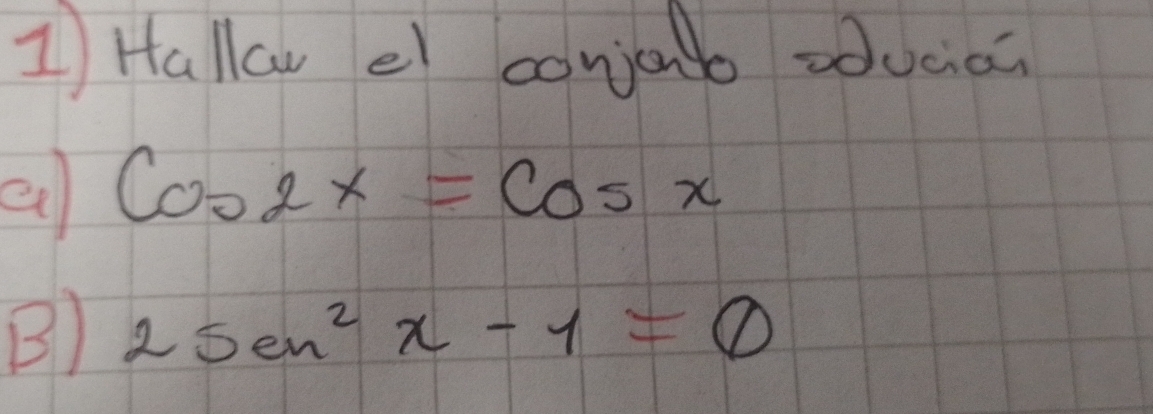 1) Hallar el conjunto solución
a) Cos 2x = Cos x
B) 2 Sen² x - 1 = 0